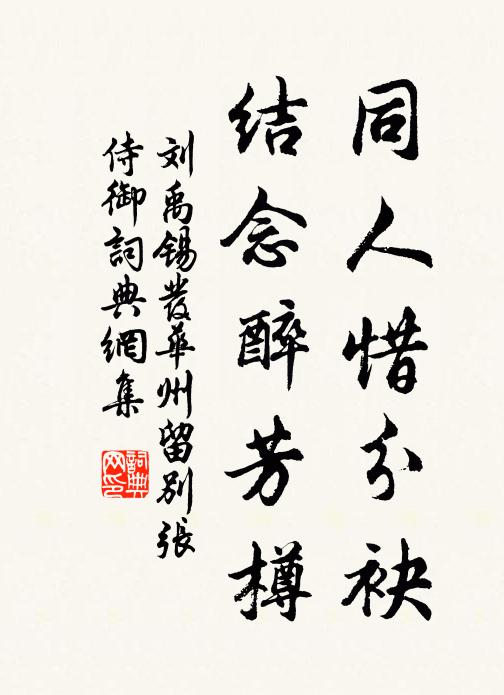 同人惜分袂
结念醉芳樽
刘禹锡發華州留别張
侍御詞典網集
詞典
网印